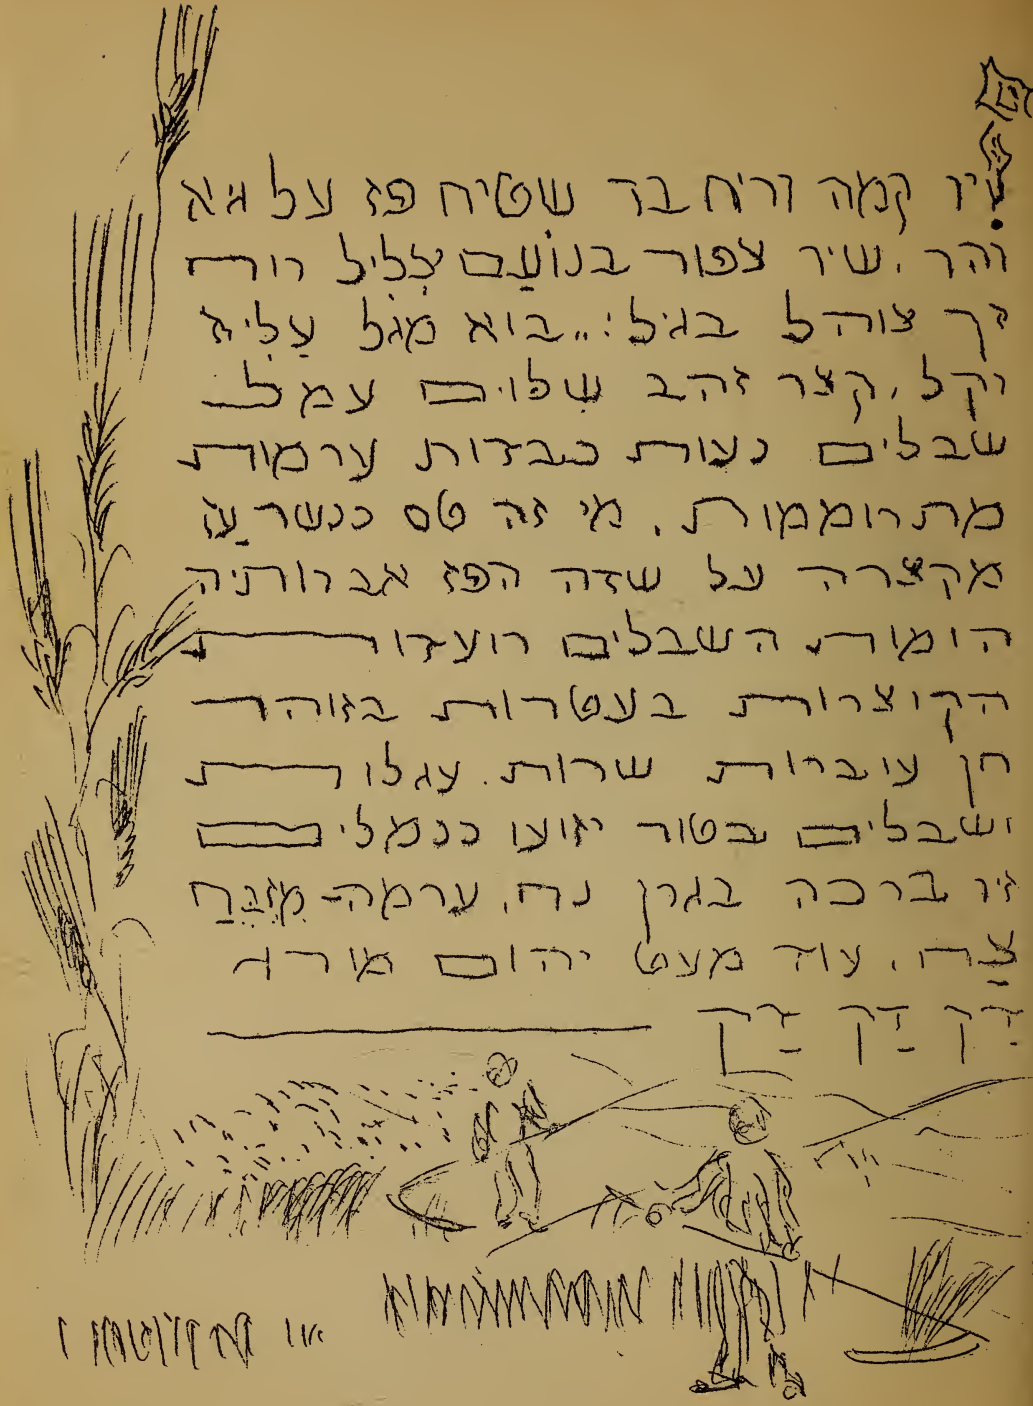 זיו קמה וריח בר שטיח פז על גיא
והר. שיר צפור בנוֹעַם צְלִיל רוח
זך צוהל בגיל: „בוא מגֹל עָלִיא
וקל, קצר זהב שִלוים עמל
שבלים נעות כבדות ערמות
מתרוממות. מי זה טס כנשר עַז
מקצרה על שדה הפז אברותיה
הומות. השבלים רועדות
הקוצרות בעטרות בזוהר
חן עיברות שרות. עגלות
ושבלים בטור יזועו כגמלים
זיו ברכה בגרן נח. ערמה-מִזְבַּח
צַח. עוד מעט יהום מורג
דִק דַק דַק